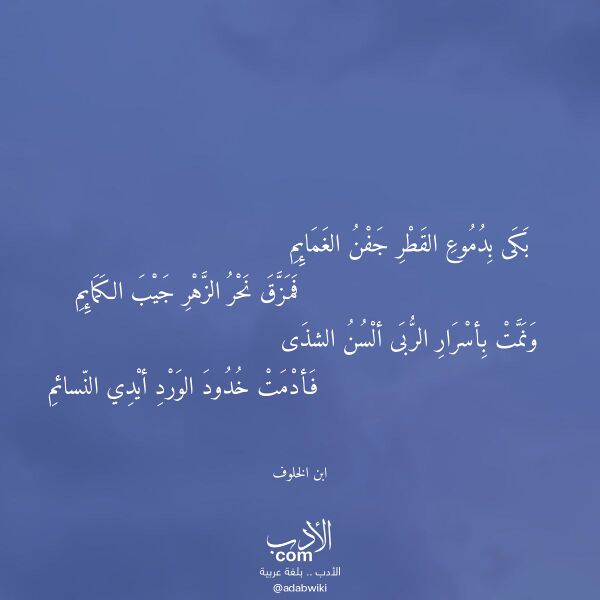 بَكَى بِدُمُوعِ القَطْرِ جَفْنُ الغَمَايِمِ
فَمَزَّقَ نَحْرُ الزَّهْرِ جَيْبَ الكَمَايِمِ
وَنَمَّتْ بِأسْرَارِ الرُّبَى ألْسُنُ الشذَى
فَأدْمَتْ خُدُودَ الوَرْدِ أيْدِي النّسائمِ
ابن الخلوف
الأدب
com
الأدب .. بلغة عربية
@adabwiki